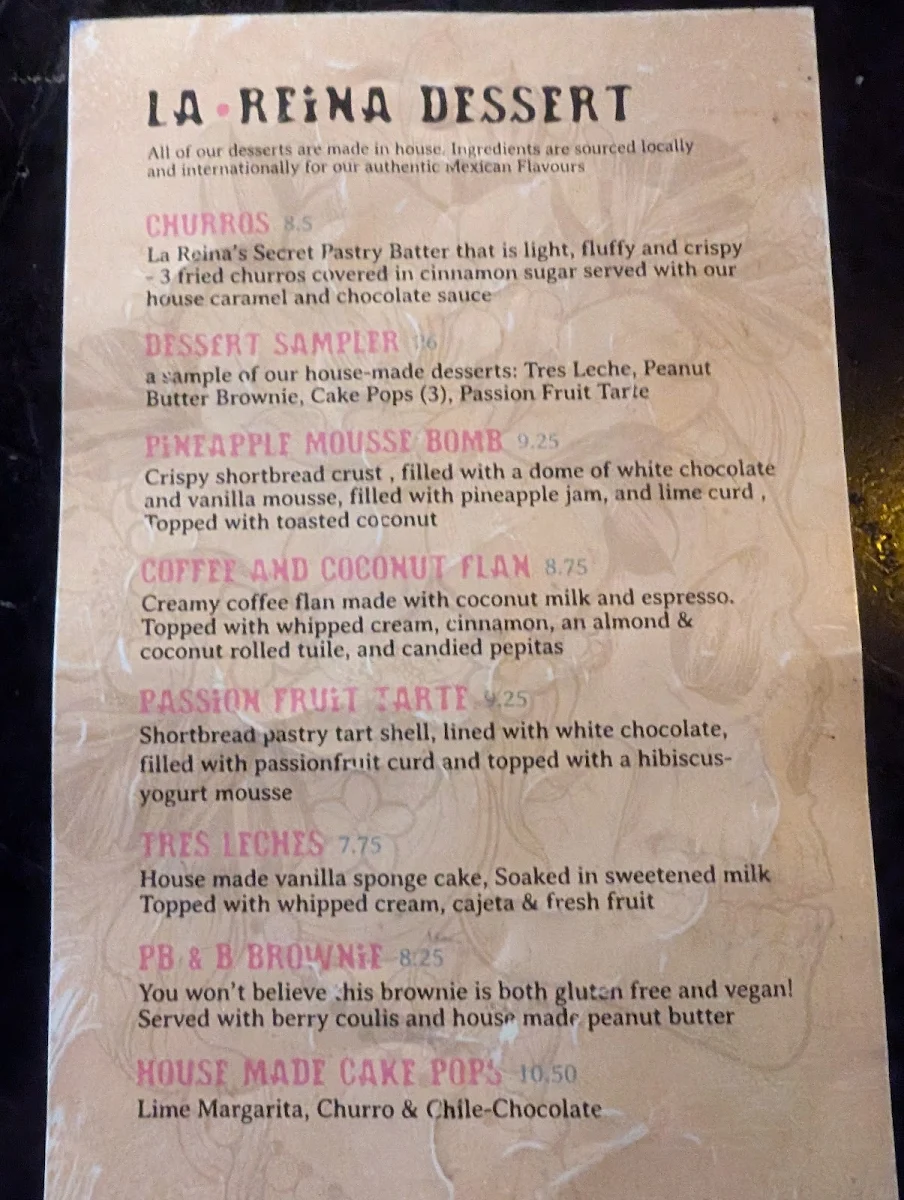 LA • REINA DESSERT
All of our desserts are made in house. Ingredients are sourced locally
and internationally for our authentic Mexican Flavours
CHURROS 8.5
La Reina's Secret Pastry Batter that is light, fluffy and crispy
- 3 fried churros covered in cinnamon sugar served with our
house caramel and chocolate sauce
DESSERT SAMPLER
a sample of our house-made desserts: Tres Leche, Peanut
Butter Brownie, Cake Pops (3), Passion Fruit Tarte
PINEAPPLE MOUSSE BOMB 9.25
Crispy shortbread crust , filled with a dome of white chocolate
and vanilla mousse, filled with pineapple jam, and lime curd ,
Topped with toasted coconut
COFFEE AND COCONUT FLAN 8.75
Creamy coffee flan made with coconut milk and espresso.
Topped with whipped cream, cinnamon, an almond &
coconut rolled tuile, and candied pepitas
PASSION FRUIT TARTE 9.25
Shortbread pastry tart shell, lined with white chocolate,
filled with passionfruit curd and topped with a hibiscus-
yogurt mousse
TRES LECHES 7.75
House made vanilla sponge cake, Soaked in sweetened milk
Topped with whipped cream, cajeta & fresh fruit
PB & B BROWNIE 8.25
You won't believe this brownie is both gluten free and vegan!
Served with berry coulis and house made peanut butter
HOUSE MADE CAKE POPS 10.50
Lime Margarita, Churro & Chile-Chocolate